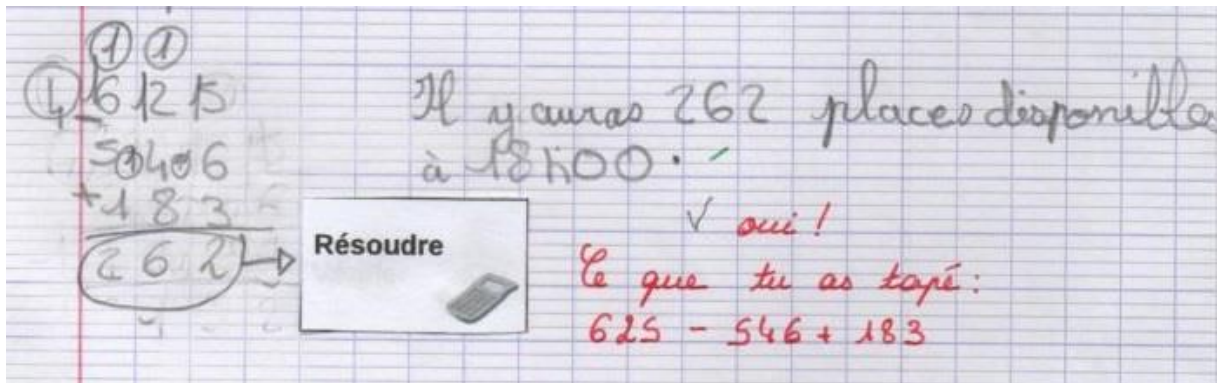 1 1
4 6 12 15
+ 1 8 3
2 6 2
Résoudre
Il y auras 262 places disponible
à 18h00.
✓ oui !
Ce que tu as tapé :
625 - 546 + 183